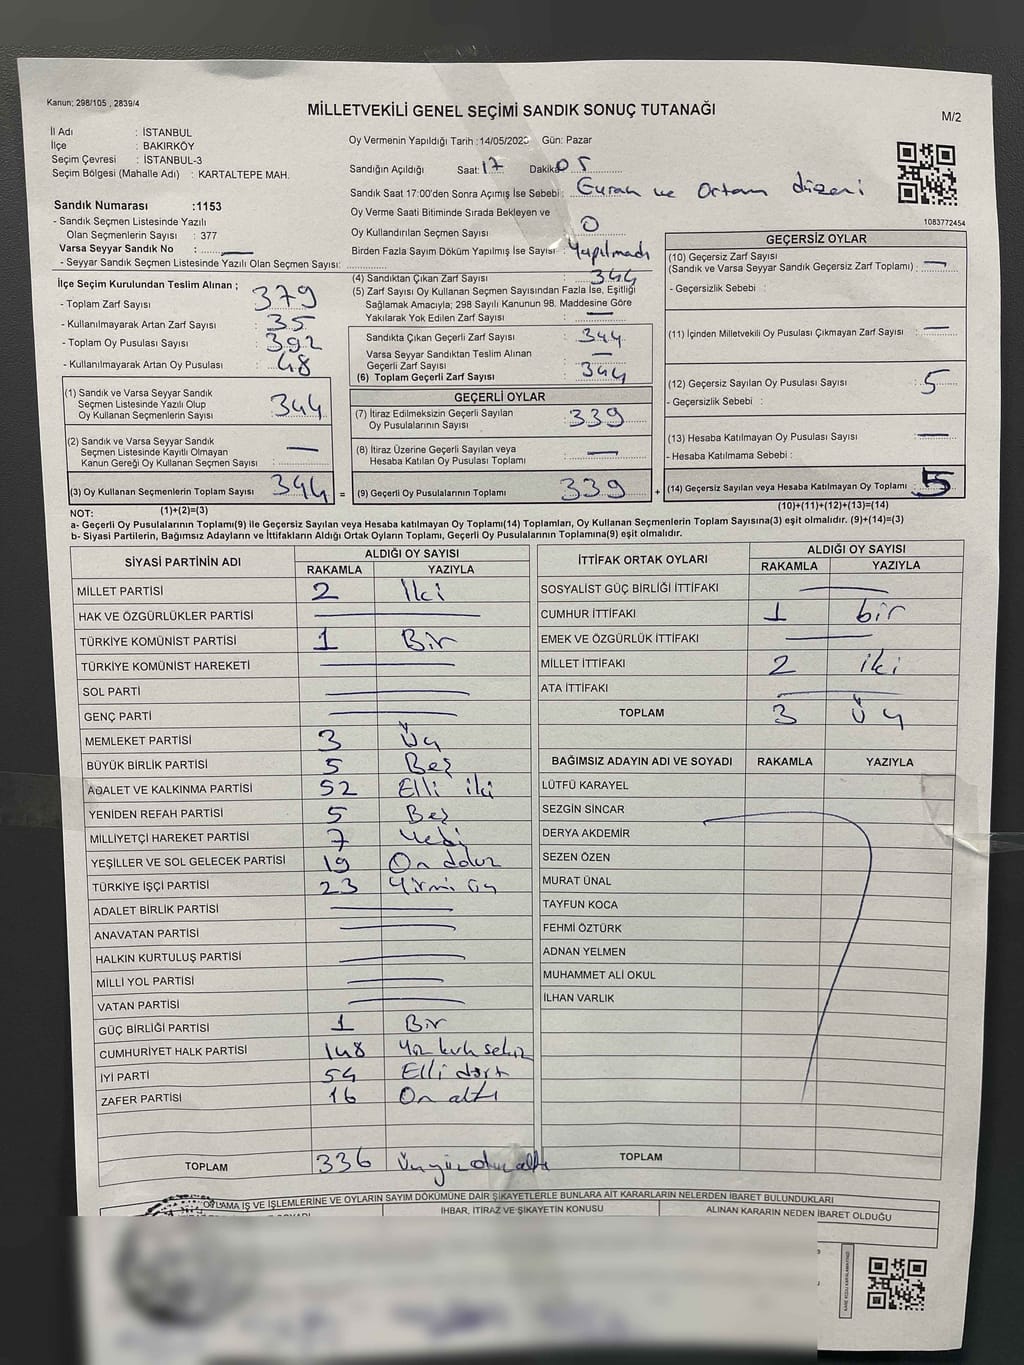 Kanun; 298/105 , 2839/4
MİLLETVEKİLİ GENEL SEÇİMİ SANDIK SONUÇ TUTANAĞI
M/2
İl Adı : İSTANBUL
İlçe : BAKIRKÖY
Seçim Çevresi : İSTANBUL-3
Seçim Bölgesi (Mahalle Adı) : KARTALTEPE MAH.
Oy Vermenin Yapıldığı Tarih :14/05/2023 Gün: Pazar
Sandığın Açıldığı Saat: 17 Dakika 05
Sandık Saat 17:00'den Sonra Açımış İse Sebebi : Evrak ve Ortam düzeni
Oy Verme Saati Bitiminde Sırada Bekleyen ve
Oy Kullandırılan Seçmen Sayısı : 0
Birden Fazla Sayım Döküm Yapılmış İse Sayısı : Yapılmadı
1083772454
Sandık Numarası :1153
- Sandık Seçmen Listesinde Yazılı
Olan Seçmenlerin Sayısı : 377
Varsa Seyyar Sandık No : —
- Seyyar Sandık Seçmen Listesinde Yazılı Olan Seçmen Sayısı:
İlçe Seçim Kurulundan Teslim Alınan ;
- Toplam Zarf Sayısı : 379
- Kullanılmayarak Artan Zarf Sayısı : 35
- Toplam Oy Pusulası Sayısı : 392
- Kullanılmayarak Artan Oy Pusulası : 48
(1) Sandık ve Varsa Seyyar Sandık
Seçmen Listesinde Yazılı Olup
Oy Kullanan Seçmenlerin Sayısı : 344
(2) Sandık ve Varsa Seyyar Sandık
Seçmen Listesinde Kayıtlı Olmayan
Kanun Gereği Oy Kullanan Seçmen Sayısı : —
(3) Oy Kullanan Seçmenlerin Toplam Sayısı : 344
(1)+(2)=(3)
(4) Sandıktan Çıkan Zarf Sayısı : 344
(5) Zarf Sayısı Oy Kullanan Seçmen Sayısından Fazla İse, Eşitliği
Sağlamak Amacıyla; 298 Sayılı Kanunun 98. Maddesine Göre
Yakılarak Yok Edilen Zarf Sayısı : —
Sandıkta Çıkan Geçerli Zarf Sayısı : 344
Varsa Seyyar Sandıktan Teslim Alınan
Geçerli Zarf Sayısı : —
(6) Toplam Geçerli Zarf Sayısı : 344
GEÇERLİ OYLAR
(7) İtiraz Edilmeksizin Geçerli Sayılan
Oy Pusulalarının Sayısı : 339
(8) İtiraz Üzerine Geçerli Sayılan veya
Hesaba Katılan Oy Pusulası Toplamı : —
= (9) Geçerli Oy Pusulalarının Toplamı : 339
GEÇERSİZ OYLAR
(10) Geçersiz Zarf Sayısı
(Sandık ve Varsa Seyyar Sandık Geçersiz Zarf Toplamı) : —
- Geçersizlik Sebebi :
(11) İçinden Milletvekili Oy Pusulası Çıkmayan Zarf Sayısı : —
(12) Geçersiz Sayılan Oy Pusulası Sayısı : 5
- Geçersizlik Sebebi :
(13) Hesaba Katılmayan Oy Pusulası Sayısı : —
- Hesaba Katılmama Sebebi :
+ (14) Geçersiz Sayılan veya Hesaba Katılmayan Oy Toplamı : 5
(10)+(11)+(12)+(13)=(14)
NOT:
a- Geçerli Oy Pusulalarının Toplamı(9) ile Geçersiz Sayılan veya Hesaba katılmayan Oy Toplamı(14) Toplamları, Oy Kullanan Seçmenlerin Toplam Sayısına(3) eşit olmalıdır. (9)+(14)=(3)
b- Siyasi Partilerin, Bağımsız Adayların ve İttifakların Aldığı Ortak Oyların Toplamı, Geçerli Oy Pusulalarının Toplamına(9) eşit olmalıdır.
SİYASİ PARTİNİN ADI ALDIĞI OY SAYISI
RAKAMLA YAZIYLA
MİLLET PARTİSİ 2 İki
HAK VE ÖZGÜRLÜKLER PARTİSİ —
TÜRKİYE KOMÜNİST PARTİSİ 1 Bir
TÜRKİYE KOMÜNİST HAREKETİ —
SOL PARTİ —
GENÇ PARTİ —
MEMLEKET PARTİSİ 3 Üç
BÜYÜK BİRLİK PARTİSİ 5 Beş
ADALET VE KALKINMA PARTİSİ 52 Elli iki
YENİDEN REFAH PARTİSİ 5 Beş
MİLLİYETÇİ HAREKET PARTİSİ 7 Yedi
YEŞİLLER VE SOL GELECEK PARTİSİ 19 On dokuz
TÜRKİYE İŞÇİ PARTİSİ 23 Yirmi üç
ADALET BİRLİK PARTİSİ —
ANAVATAN PARTİSİ —
HALKIN KURTULUŞ PARTİSİ —
MİLLİ YOL PARTİSİ —
VATAN PARTİSİ —
GÜÇ BİRLİĞİ PARTİSİ 1 Bir
CUMHURİYET HALK PARTİSİ 148 Yüz kırk sekiz
İYİ PARTİ 54 Elli dört
ZAFER PARTİSİ 16 On altı
TOPLAM 336 Üçyüzotuzaltı
İTTİFAK ORTAK OYLARI ALDIĞI OY SAYISI
RAKAMLA YAZIYLA
SOSYALİST GÜÇ BİRLİĞİ İTTİFAKI —
CUMHUR İTTİFAKI 1 bir
EMEK VE ÖZGÜRLÜK İTTİFAKI —
MİLLET İTTİFAKI 2 iki
ATA İTTİFAKI —
TOPLAM 3 Üç
BAĞIMSIZ ADAYIN ADI VE SOYADI RAKAMLA YAZIYLA
LÜTFÜ KARAYEL
SEZGİN SİNCAR
DERYA AKDEMİR
SEZEN ÖZEN
MURAT ÜNAL
TAYFUN KOCA
FEHMİ ÖZTÜRK
ADNAN YELMEN
MUHAMMET ALİ OKUL
İLHAN VARLIK
TOPLAM
OYLAMA İŞ VE İŞLEMLERİNE VE OYLARIN SAYIM DÖKÜMÜNE DAİR ŞİKAYETLERLE BUNLARA AİT KARARLARIN NELERDEN İBARET BULUNDUKLARI
İHBAR, İTİRAZ VE ŞİKAYETİN KONUSU ALINAN KARARIN NEDEN İBARET OLDUĞU